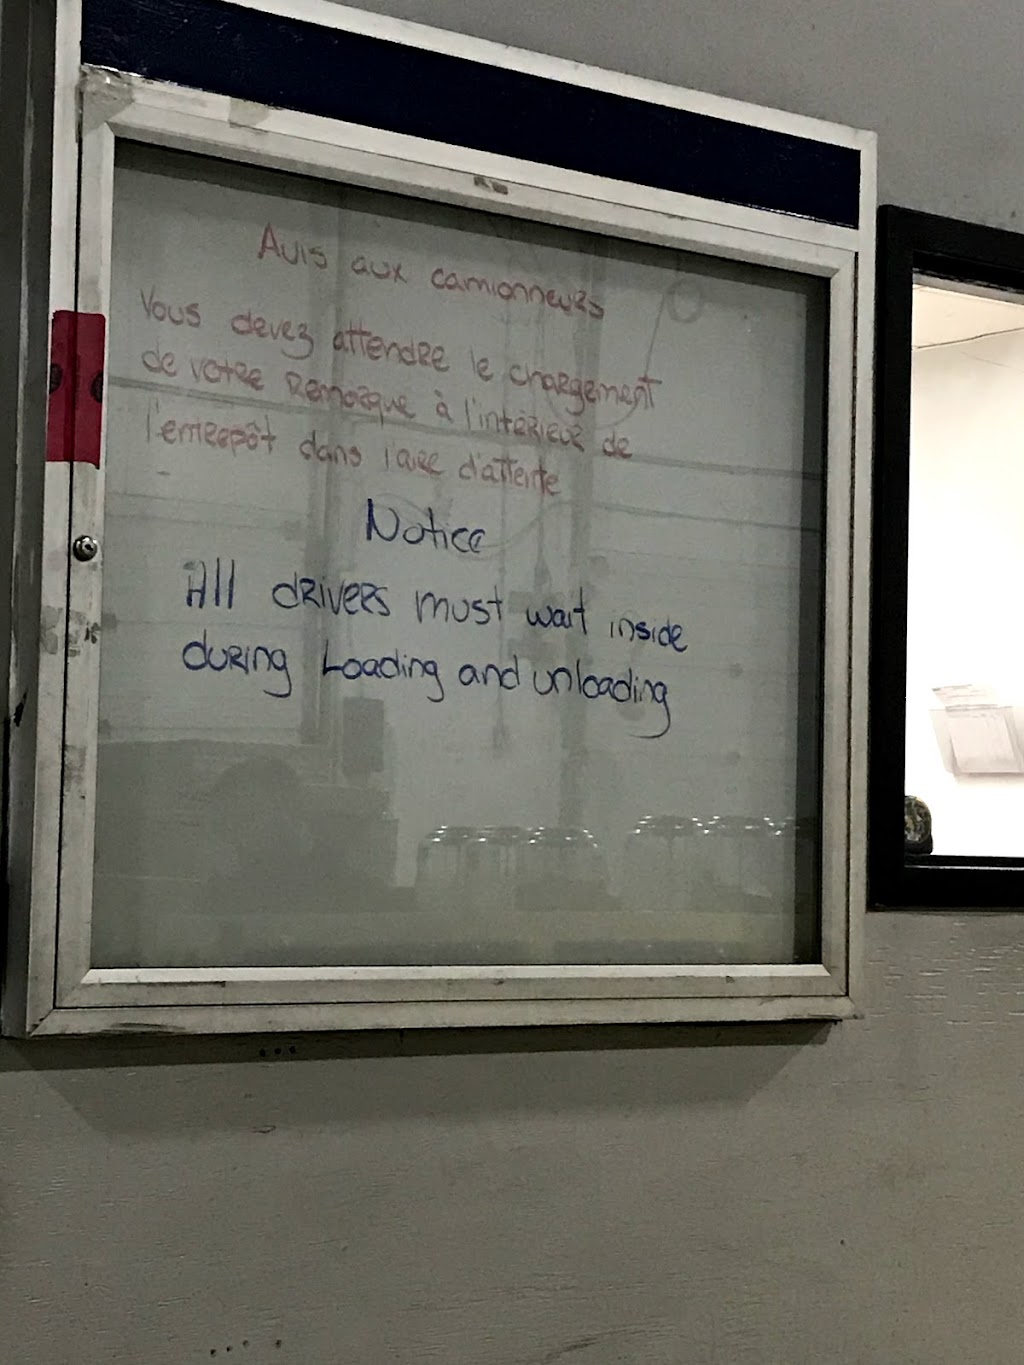 Avis aux camionneurs
Vous devez attendre le chargement
de votre remorque à l'intérieur de
l'entrepôt dans l'aire d'attente
Notice
All drivers must wait inside
during Loading and unloading